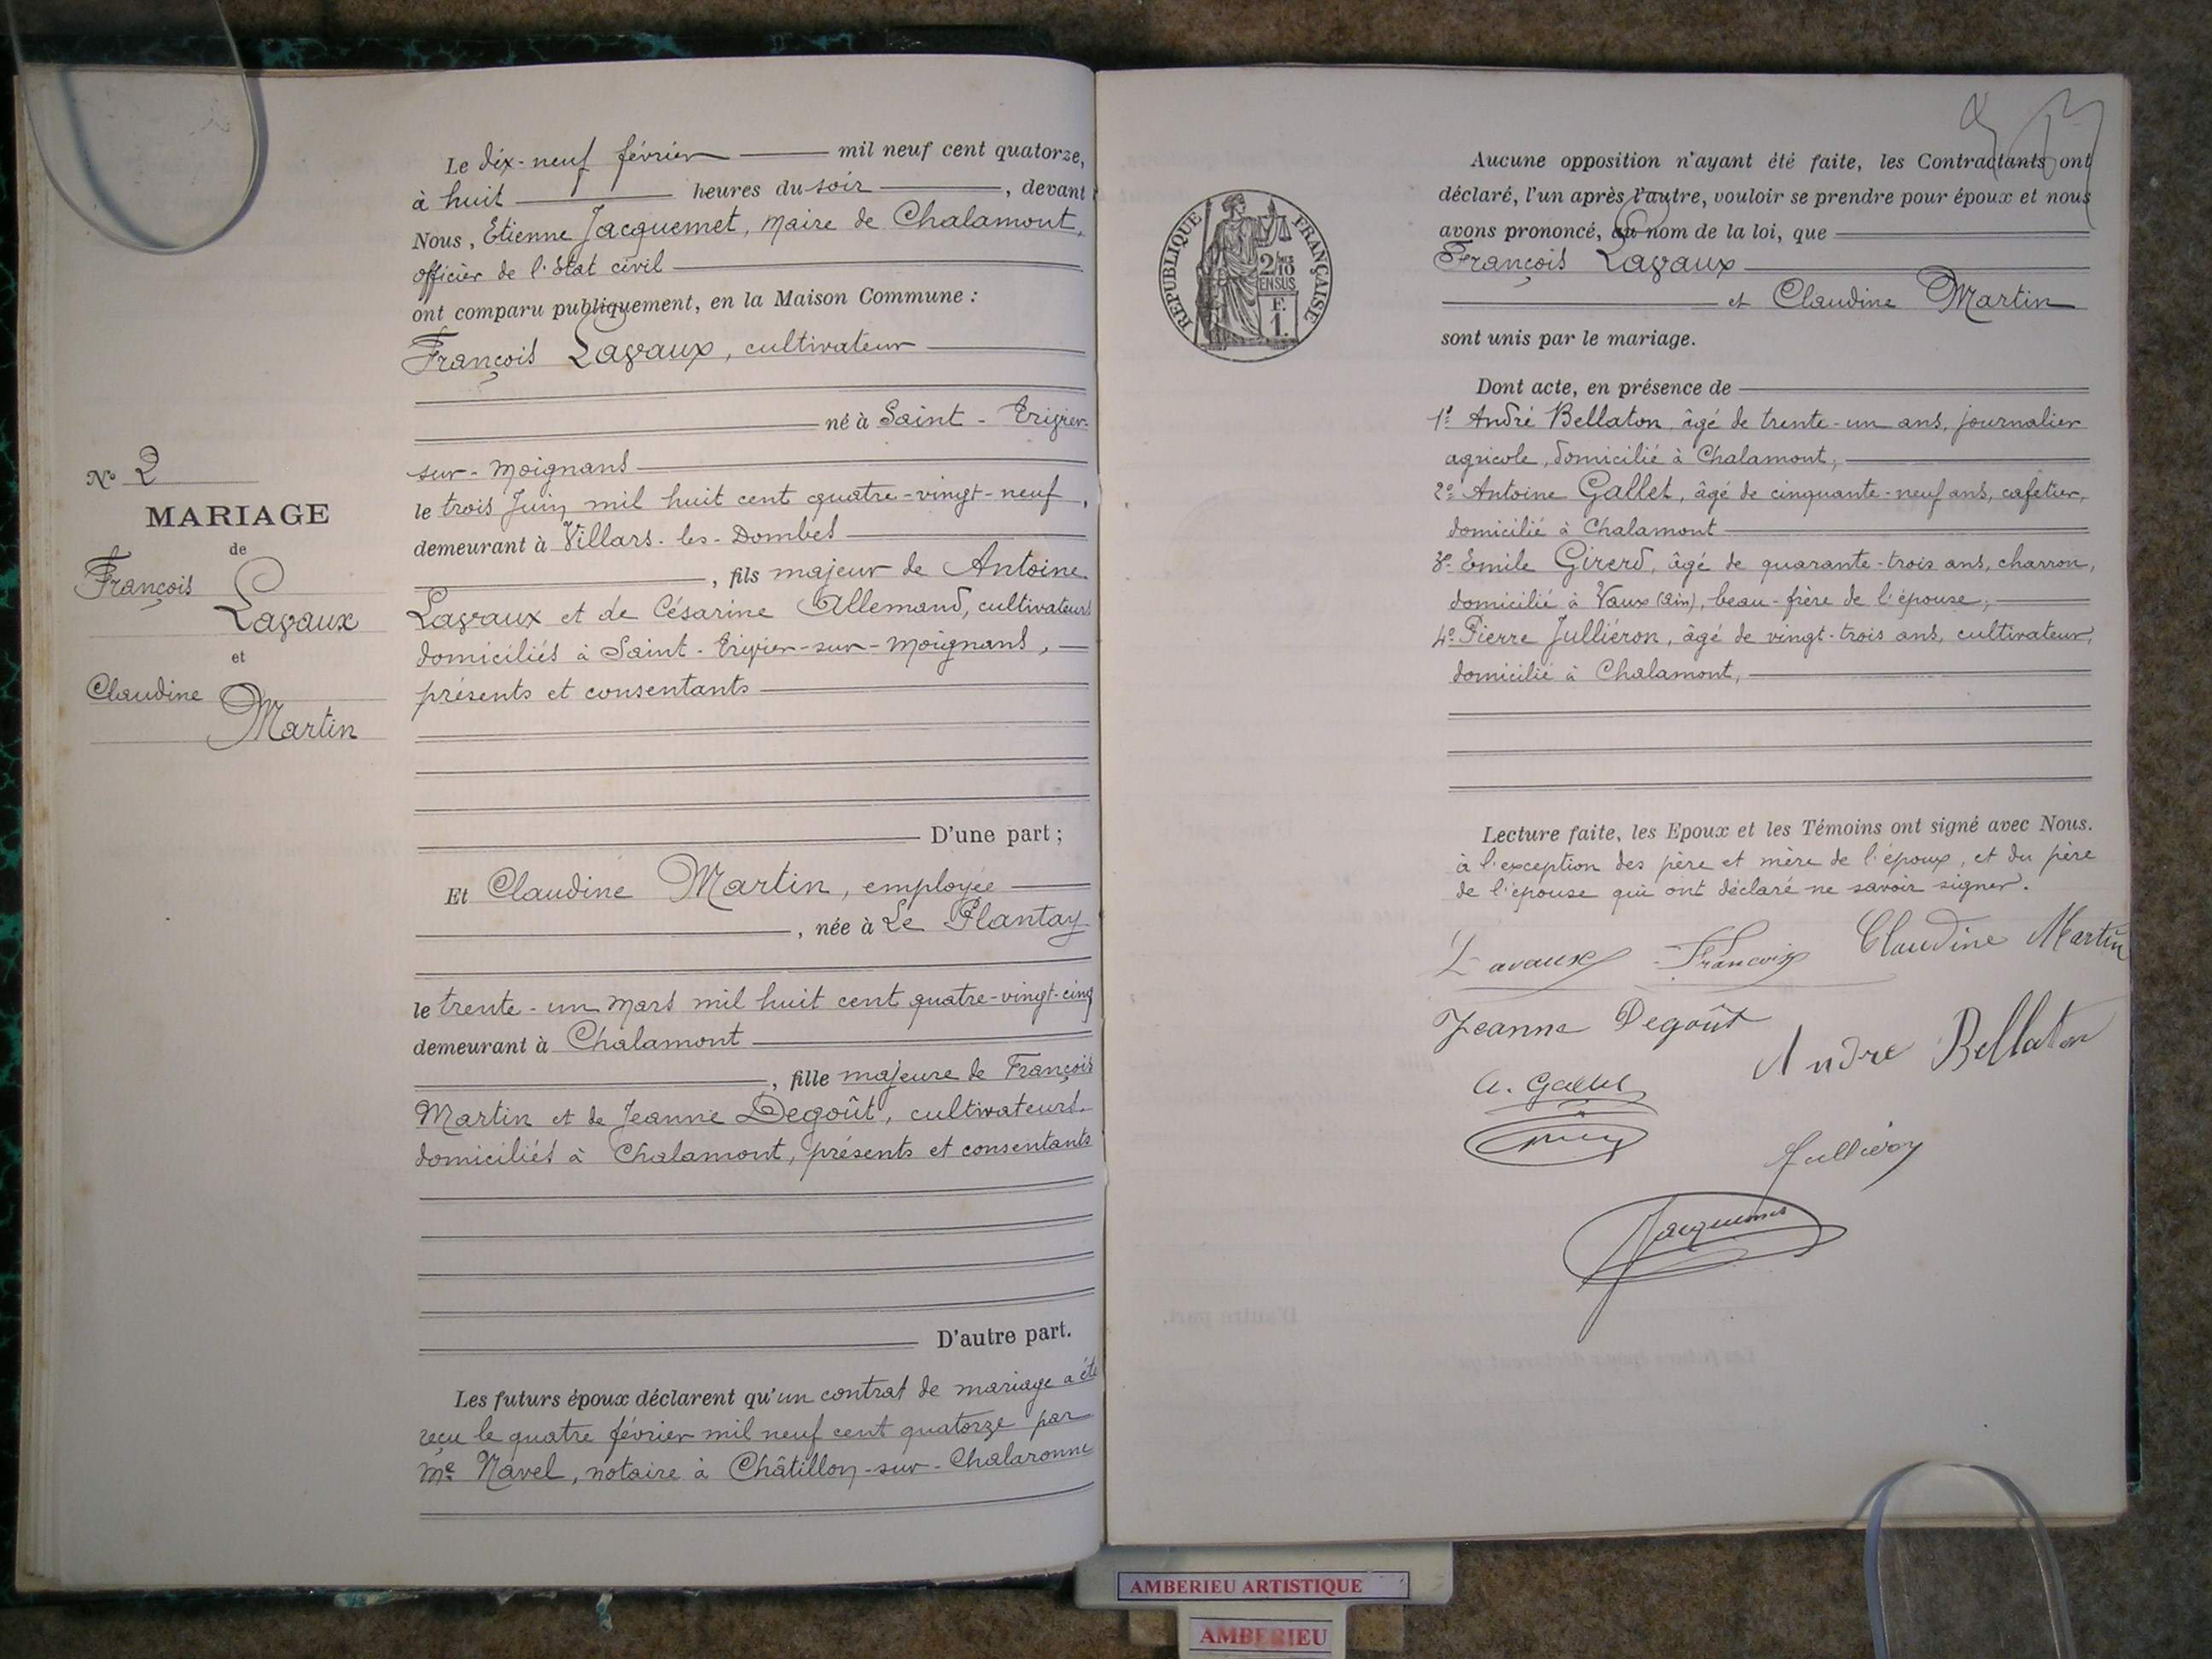 N° 2
MARIAGE
de
François
Lavaux
et
Claudine
Martin
Le dix-neuf février mil neuf cent quatorze,
à huit heures du soir, devant
Nous, Etienne Jacquemet, Maire de Chalamont,
officier de l'Etat civil
ont comparu publiquement, en la Maison Commune :
François Lavaux, cultivateur
né à Saint-Trivier-
sur-Moignans
le trois Juin mil huit cent quatre-vingt-neuf,
demeurant à Villars-les-Dombes
, fils majeur de Antoine
Lavaux et de Césarine Allemand, cultivateurs
domiciliés à Saint-Trivier-sur-Moignans,
présents et consentants
D'une part ;
Et Claudine Martin, employée
, née à Le Plantay
le trente-un Mars mil huit cent quatre-vingt-cinq
demeurant à Chalamont
, fille majeure de François
Martin et de Jeanne Degoût, cultivateurs
domiciliés à Chalamont, présents et consentants
D'autre part.
Les futurs époux déclarent qu'un contrat de mariage a été
reçu le quatre février mil neuf cent quatorze par
Me Navel, notaire à Châtillon-sur-Chalaronne
REPUBLIQUE FRANÇAISE
2/10
EN SUS
F.
1.
Aucune opposition n'ayant été faite, les Contractants ont
déclaré, l'un après l'autre, vouloir se prendre pour époux et nous
avons prononcé, au nom de la loi, que
François Lavaux
et Claudine Martin
sont unis par le mariage.
Dont acte, en présence de
1° André Bellaton, âgé de trente-un ans, journalier
agricole, domicilié à Chalamont,
2° Antoine Gallet, âgé de cinquante-neuf ans, cafetier,
domicilié à Chalamont
3° Emile Girerd, âgé de quarante-trois ans, charron,
domicilié à Vaux (Ain), beau-frère de l'épouse,
4° Pierre Julliéron, âgé de vingt-trois ans, cultivateur,
domicilié à Chalamont,
Lecture faite, les Epoux et les Témoins ont signé avec Nous.
à l'exception des père et mère de l'époux, et du père
de l'épouse qui ont déclaré ne savoir signer.
Lavaux François Claudine Martin
Jeanne Degoût
Andre Bellaton
A. Gallet
Julliéron
Jacquemet
AMBERIEU ARTISTIQUE
AMBERIEU